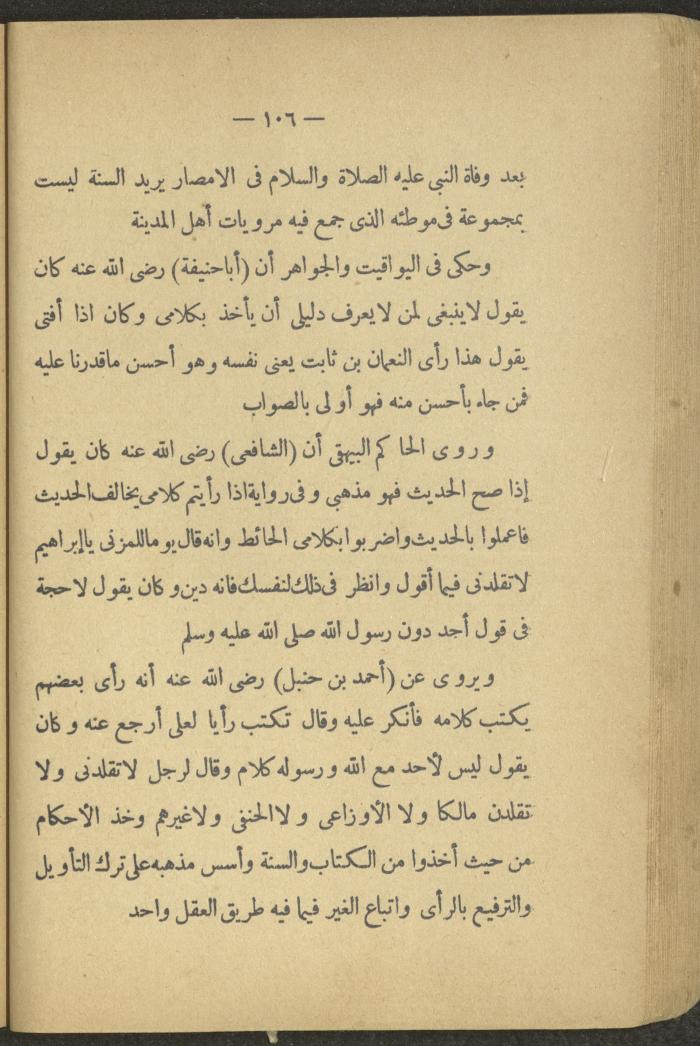 — ١٠٦ —
بعد وفاة النبى عليه الصلاة والسلام فى الامصار يريد السنة ليست
بمجموعة فى موطئه الذى جمع فيه مرويات أهل المدينة
وحكى فى اليواقيت والجواهر أن (أباحنيفة) رضى الله عنه كان
يقول لاينبغى لمن لايعرف دليلى أن يأخذ بكلامى وكان اذا أفتى
يقول هذا رأى النعمان بن ثابت يعنى نفسه وهو أحسن ماقدرنا عليه
فمن جاء بأحسن منه فهو أولى بالصواب
وروى الحاكم البيهقى أن (الشافعى) رضى الله عنه كان يقول
إذا صح الحديث فهو مذهبى وفى رواية اذا رأيتم كلامى يخالف الحديث
فاعملوا بالحديث واضربوا بكلامى الحائط وانه قال يوما للمزنى ياإبراهيم
لاتقلدنى فيما أقول وانظر فى ذلك لنفسك فانه دين وكان يقول لاحجة
فى قول أجد دون رسول الله صلى الله عليه وسلم
ويروى عن (أحمد بن حنبل) رضى الله عنه أنه رأى بعضهم
يكتب كلامه فأنكر عليه وقال تكتب رأيا لعلى أرجع عنه وكان
يقول ليس لأحد مع الله ورسوله كلام وقال لرجل لاتقلدنى ولا
تقلدن مالكا ولا الأوزاعى ولا الحنفى ولاغيرهم وخذ الأحكام
من حيث أخذوا من الكتاب والسنة وأسس مذهبه على ترك التأويل
والترفيع بالرأى واتباع الغير فيما فيه طريق العقل واحد